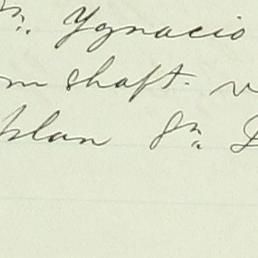 Ygnacio
m shaft.
plan Sn.